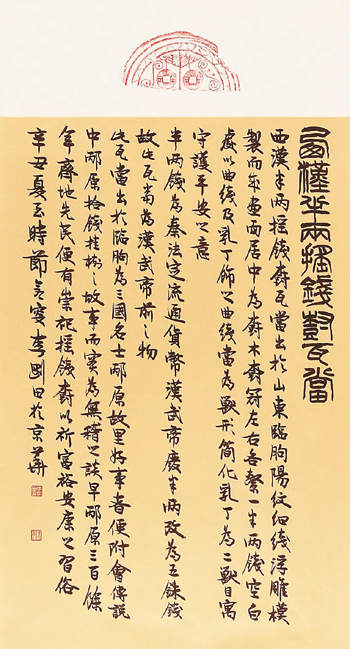 西漢半兩搖錢樹瓦當
西漢半兩搖錢樹瓦當出於山東臨朐陽紋細綫浮雕模
製而成畫面居中為樹木樹冠左右各繫一半兩錢空白
處以曲綫及乳丁飾之曲綫當為獸形简化乳丁為二獸目寓
守護平安之意
半兩錢為秦法定流通貨幣漢武帝廢半兩改為五銖錢
故此瓦當為漢武帝前之物
此瓦當出於臨朐為三國名士邴原故里好事者便附會傳説
中邴原拾錢挂樹之故事而實為無稽之談早邴原三百餘
年齊地先民便有崇祀搖錢樹以祈富裕安康之習俗
辛丑夏至時節李剛田於京華